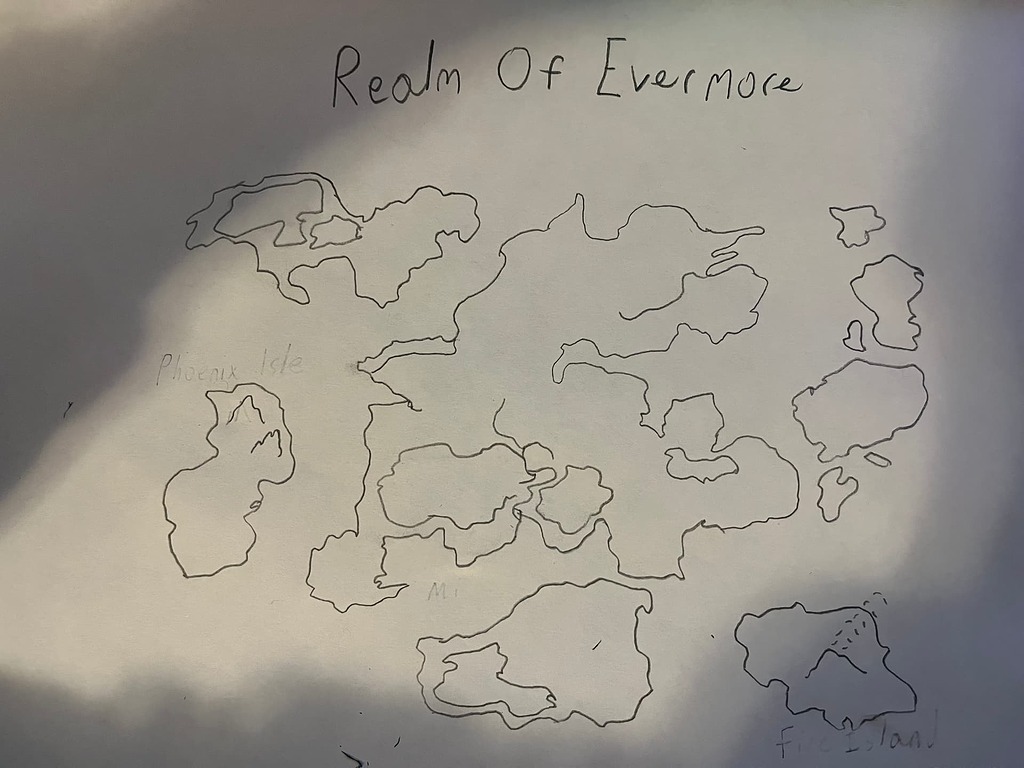 Realm Of Evermore
Phoenix Isle
Mi
Fire Island